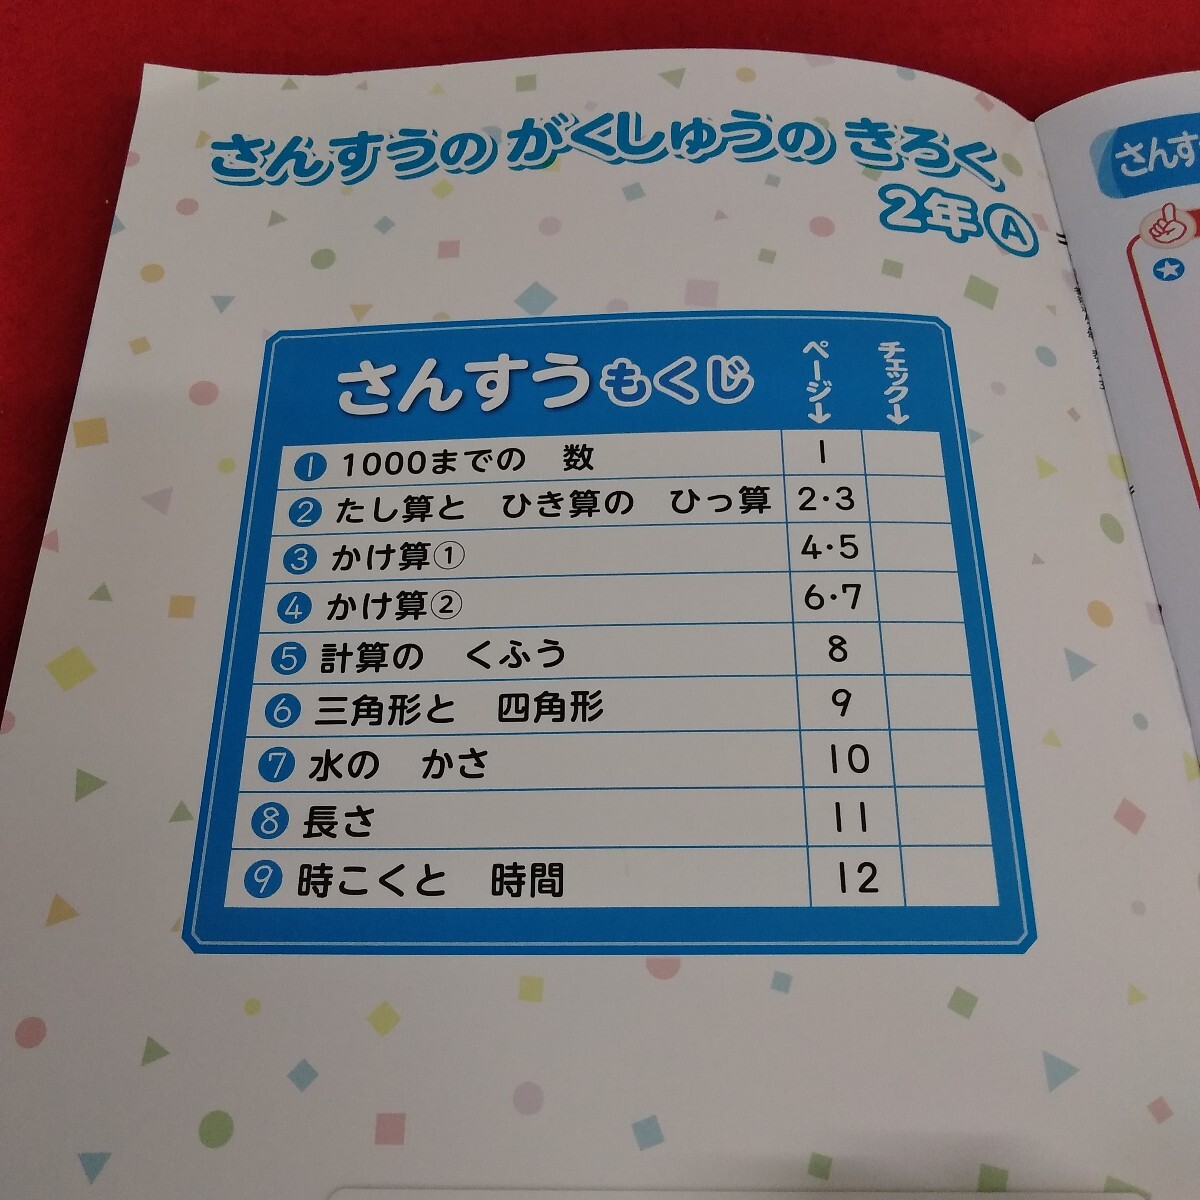 さんすうの がくしゅうの きろく
2年 A
さんすうもくじ ページ↓ チェック↓
1 1000までの 数 1
2 たし算と ひき算の ひっ算 2・3
3 かけ算① 4・5
4 かけ算② 6・7
5 計算の くふう 8
6 三角形と 四角形 9
7 水の かさ 10
8 長さ 11
9 時こくと 時間 12
さんす